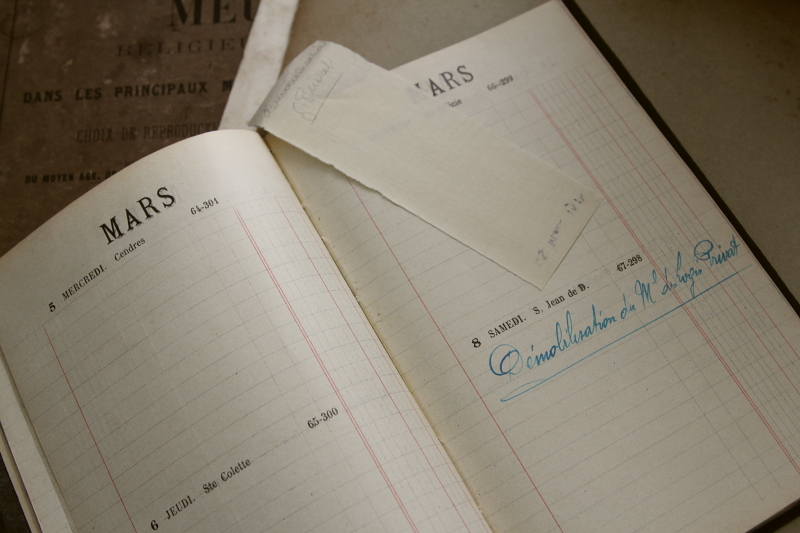 MEU
RELIGIEU
DANS LES PRINCIPAUX M
CHOIX DE REPRODUCT
DU MOYEN AGE, DE
MARS
64-301
5 MERCREDI. Cendres
65-300
6 JEUDI. Ste Colette
MARS
66-299
67-298
8 SAMEDI. S. Jean de D.
Démobilisation du Mal des logis Privat